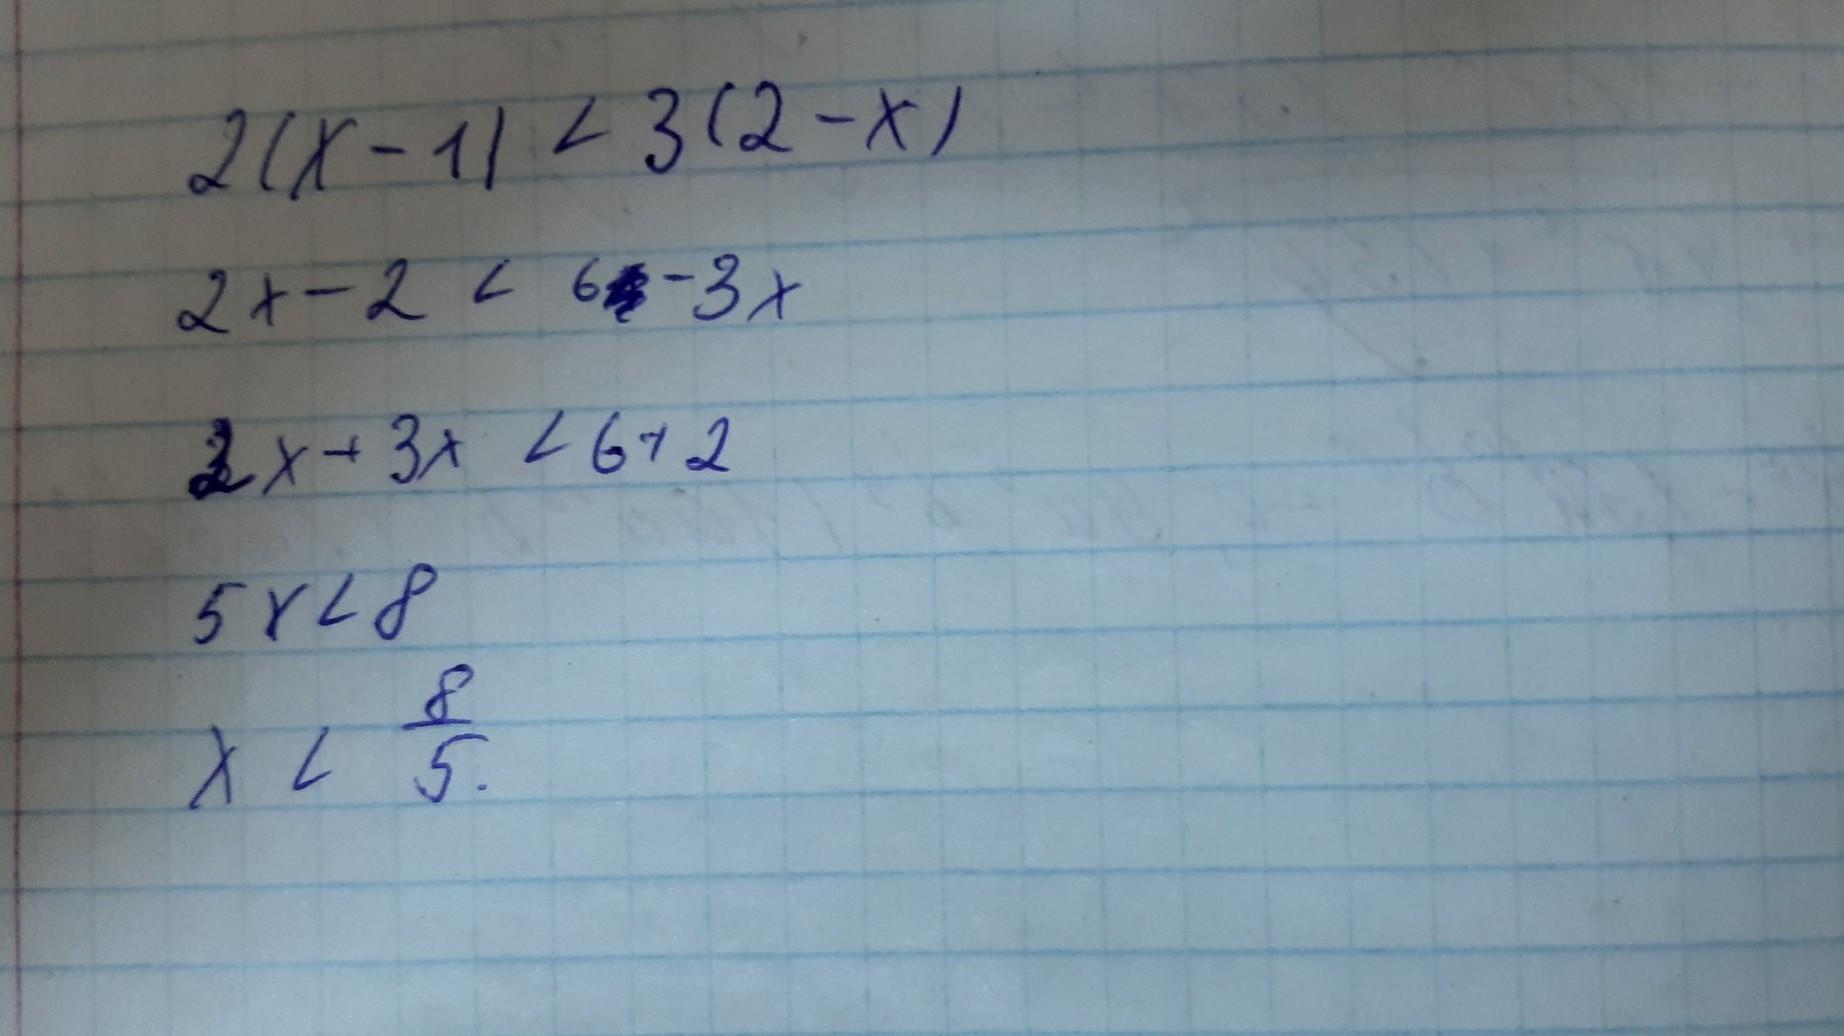 2(x-1) < 3(2-x)
2x-2 < 6-3x
2x+3x < 6+2
5x<8
x < 8/5.